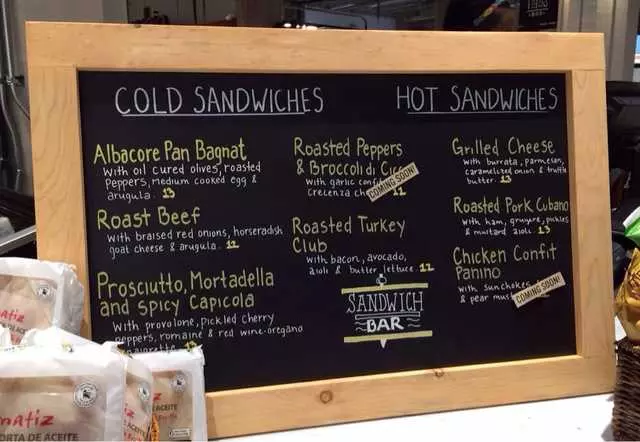 COLD SANDWICHES
Albacore Pan Bagnat
with oil cured olives, roasted
peppers, medium cooked egg &
arugula. 13
Roast Beef
with braised red onions, horseradish
goat cheese & arugula. 12
Prosciutto, Mortadella
and Spicy Capicola
with provolone, pickled cherry
peppers, romaine & red wine-oregano
Roasted Peppers
& Broccoli di
with garlic
crecenza
COMING SOON!
Roasted Turkey
Club
with bacon, avocado,
aioli & butter lettuce. 12
SANDWICH
BAR
HOT SANDWICHES
Grilled Cheese
with burrata, parmesan,
caramelized onion & truffle
butter. 13
Roasted Pork Cubano
with ham, gruyere, pickles
& mustard aioli. 13
Chicken Confit
Panino
with sunchokes
& pear
COMING SOON!
matiz
ORTA DE ACEITE